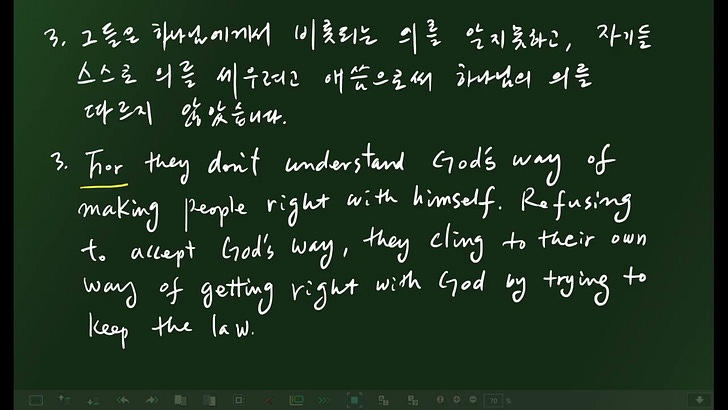 3. 그들은 하나님에게서 비롯되는 의를 알지못하고, 자기들
스스로 의를 세우려고 애씀으로써 하나님의 의를
따르지 않았습니다.
3. For they don't understand God's way of
making people right with himself. Refusing
to accept God's way, they cling to their own
way of getting right with God by trying to
keep the law.
70 %